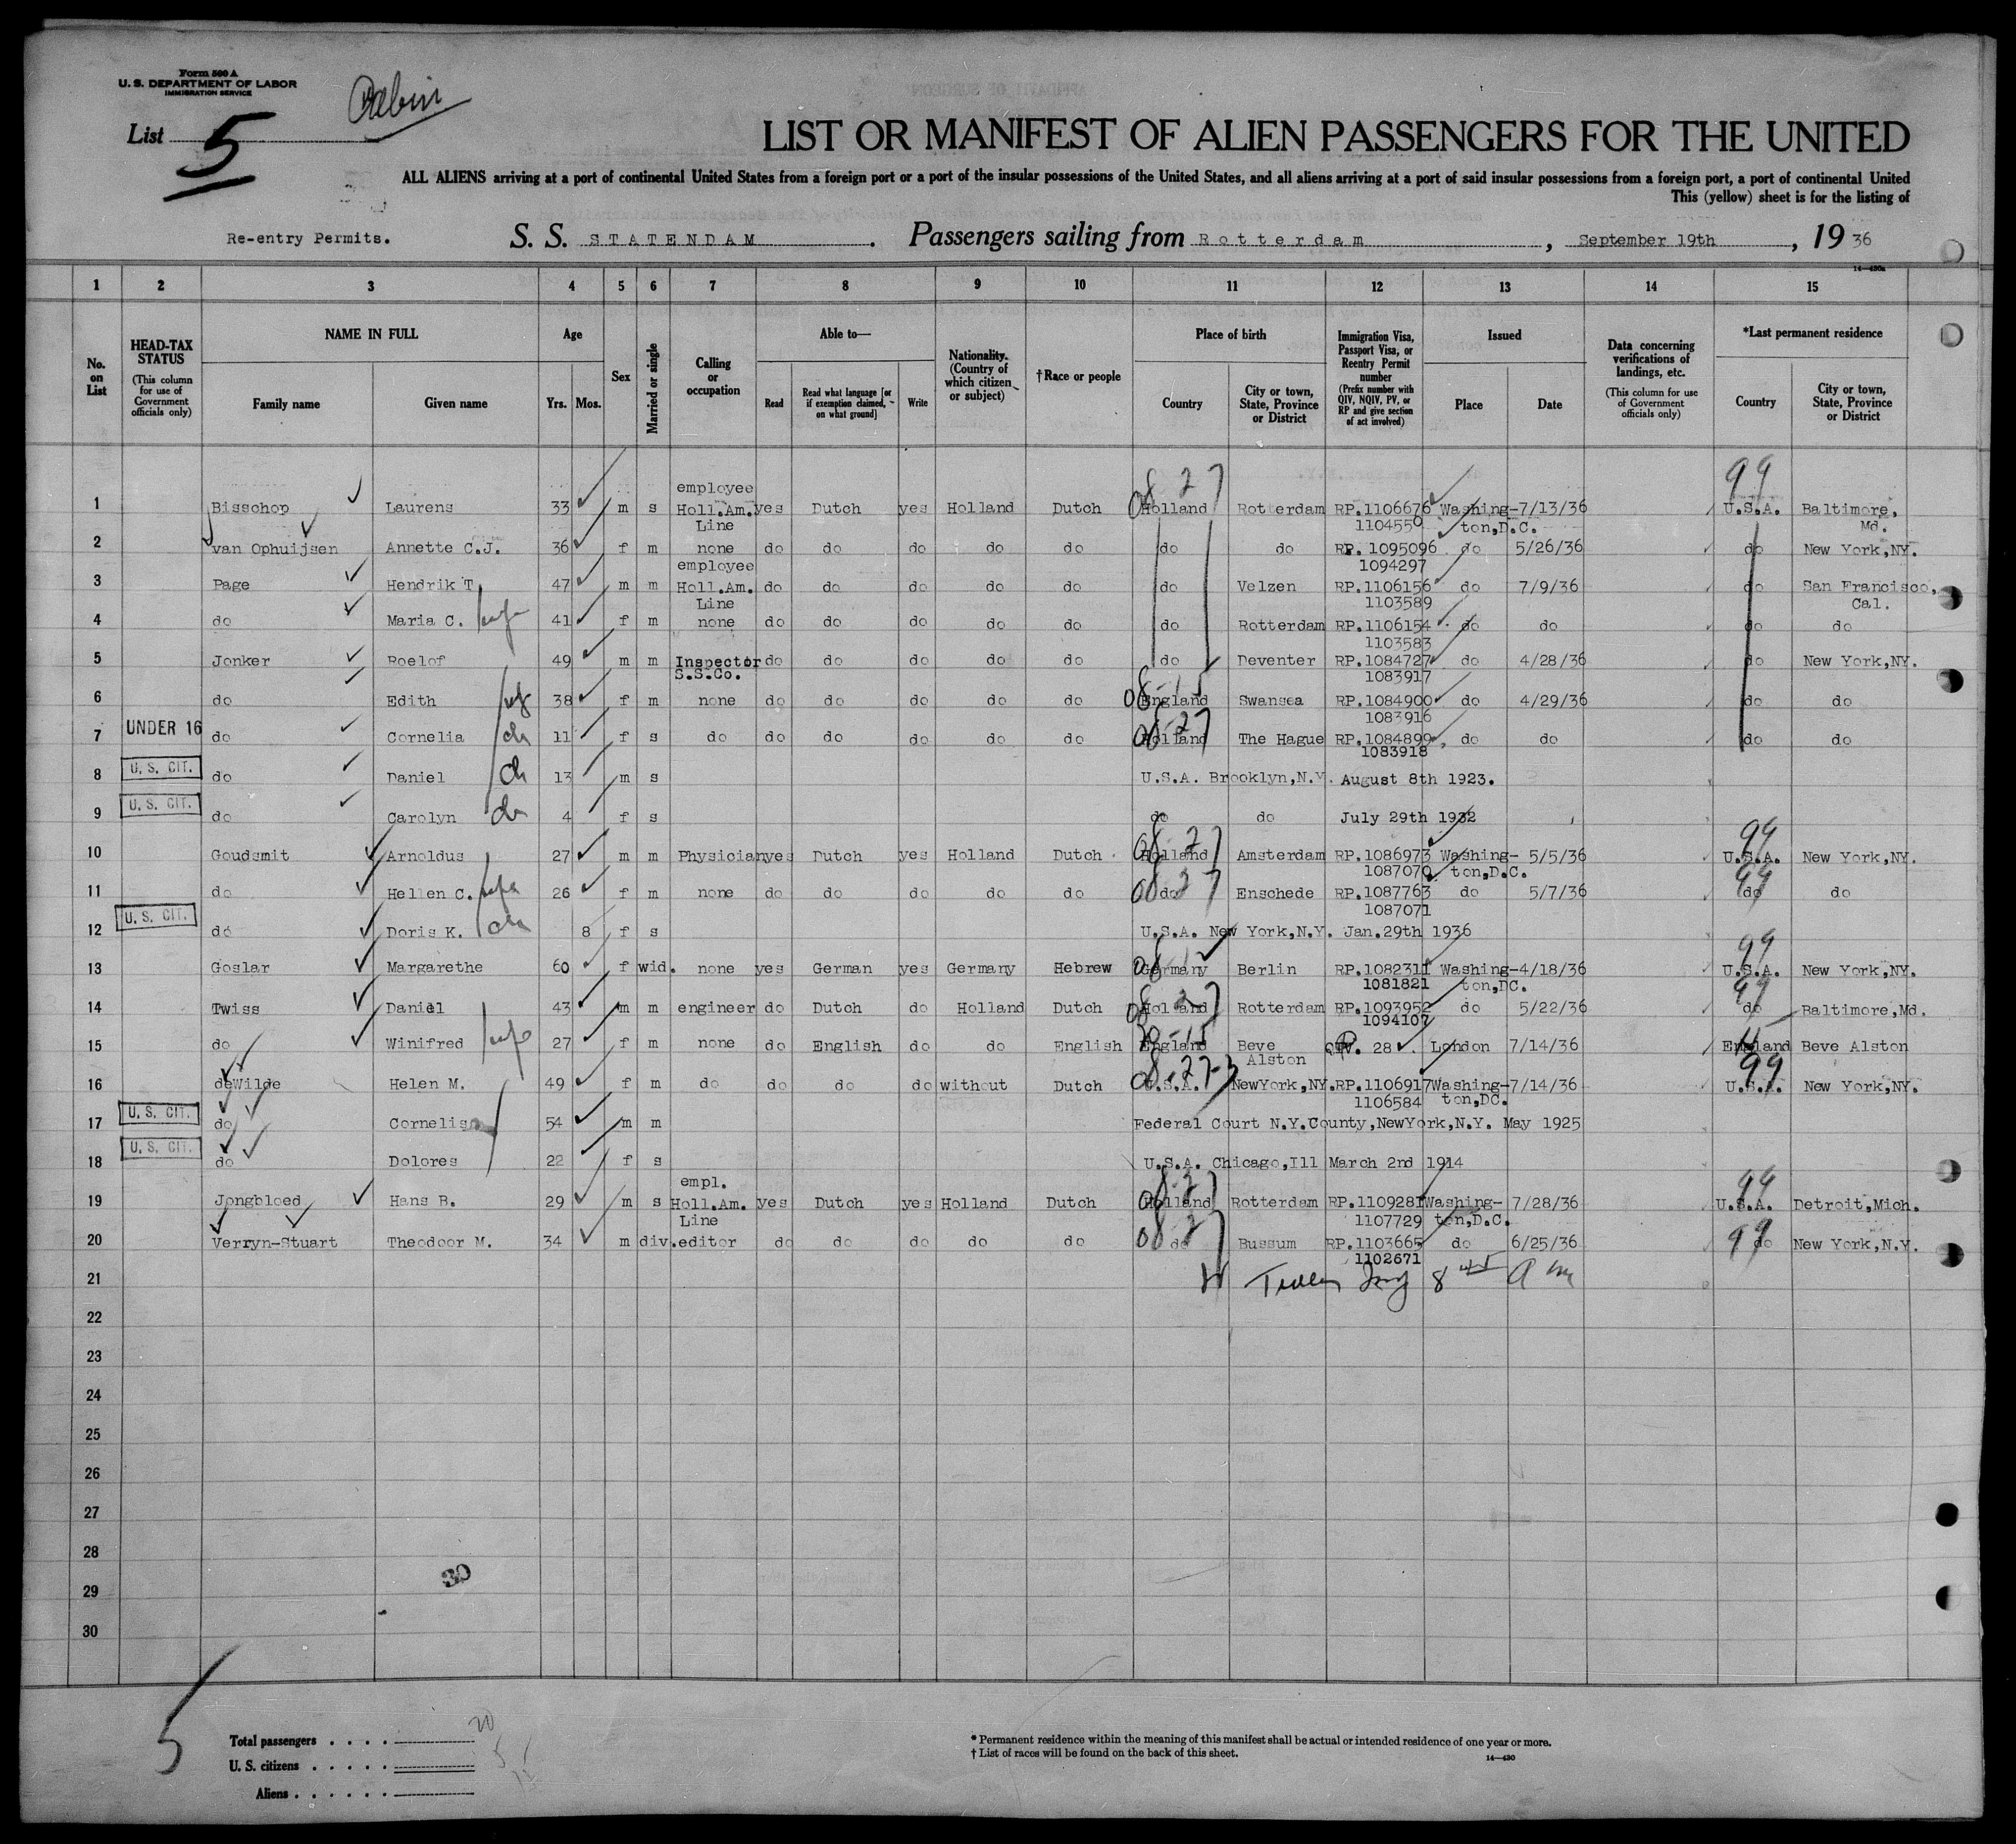 Form 500 A
U. S. DEPARTMENT OF LABOR
IMMIGRATION SERVICE
Cabin
List 5
LIST OR MANIFEST OF ALIEN PASSENGERS FOR THE UNITED
ALL ALIENS arriving at a port of continental United States from a foreign port or a port of the insular possessions of the United States, and all aliens arriving at a port of said insular possessions from a foreign port, a port of continental United
This (yellow) sheet is for the listing of
Re-entry Permits. S. S. STATENDAM . Passengers sailing from Rotterdam , September 19th , 19 36
1 2 3 4 5 6 7 8 9 10 11 12 13 14 15
No. on List
HEAD-TAX STATUS (This column for use of Government officials only)
NAME IN FULL
Family name Given name
Age
Yrs. Mos.
Sex
Married or single
Calling or occupation
Able to—
Read Read what language [or if exemption claimed, on what ground] Write
Nationality. (Country of which citizen or subject)
†Race or people
Place of birth
Country City or town, State, Province or District
Immigration Visa, Passport Visa, or Reentry Permit number (Prefix number with QIV, NQIV, PV, or RP and give section of act involved)
Issued
Place Date
Data concerning verifications of landings, etc. (This column for use of Government officials only)
*Last permanent residence
Country City or town, State, Province or District
1 Bisschop Laurens 33 m s employee Holl.Am. Line yes Dutch yes Holland Dutch Holland Rotterdam RP.1106676 1104550 Washing-ton,D.C. 7/13/36 U.S.A. Baltimore, Md.
2 van Ophuijsen Annette C.J. 36 f m none do do do do do do do RP. 1095096 1094297 do 5/26/36 do New York,NY.
3 Page Hendrik T. 47 m m employee Holl.Am. Line do do do do do do Velzen RP.1106156 1103589 do 7/9/36 do San Francisco, Cal.
4 do Maria C. wife 41 f m none do do do do do do Rotterdam RP.1106154 1103583 do do do do
5 Jonker Roelof 49 m m Inspector S.S.Co. do do do do do do Deventer RP.1084727 1083917 do 4/28/36 do New York,NY.
6 do Edith wf 38 f m none do do do do do England Swansea RP.1084900 1083916 do 4/29/36 do do
7 UNDER 16 do Cornelia ch 11 f s do do do do do do Holland The Hague RP.1084899 1083918 do do do do
8 U. S. CIT. do Daniel ch 13 m s U.S.A. Brooklyn,N.Y. August 8th 1923.
9 U. S. CIT. do Carolyn ch 4 f s do do July 29th 1932
10 Goudsmit Arnoldus 27 m m Physician yes Dutch yes Holland Dutch Holland Amsterdam RP.1086973 1087070 Washing-ton,D.C. 5/5/36 U.S.A. New York,NY.
11 do Hellen C. wife 26 f m none do do do do do do Enschede RP.1087763 1087071 do 5/7/36 do do
12 U. S. CIT. do Doris K. ch 8 f s U.S.A. New York,N.Y. Jan.29th 1936
13 Goslar Margarethe 60 f wid. none yes German yes Germany Hebrew Germany Berlin RP.1082311 1081821 Washing-ton,DC. 4/18/36 U.S.A. New York,NY.
14 Twiss Daniel 43 m m engineer do Dutch do Holland Dutch Holland Rotterdam RP.1093952 1094107 do 5/22/36 do Baltimore,Md.
15 do Winifred wife 27 f m none do English do do English England Beve Alston 28 London 7/14/36 England Beve Alston
16 deWilde Helen M. 49 f m do do do do without Dutch U.S.A. NewYork,NY. RP.1106917 1106584 Washing-ton,DC. 7/14/36 U.S.A. New York,NY.
17 U. S. CIT. do Cornelis 54 m m Federal Court N.Y.County,NewYork,N.Y. May 1925
18 U. S. CIT. do Dolores 22 f s U.S.A. Chicago,Ill March 2nd 1914
19 Jongbloed Hans B. 29 m s empl. Holl.Am. Line yes Dutch yes Holland Dutch Holland Rotterdam RP.1109281 1107729 Washing-ton,D.C. 7/28/36 U.S.A. Detroit,Mich.
20 Verryn-Stuart Theodoor M. 34 m div. editor do do do do do do Bussum RP.1103665 1102671 do 6/25/36 do New York,N.Y.
21
22
23
24
25
26
27
28
29
30
30
5
Total passengers . . . . 20
U. S. citizens . . . . . 5
Aliens . . . . . .
* Permanent residence within the meaning of this manifest shall be actual or intended residence of one year or more.
† List of races will be found on the back of this sheet.
14—430